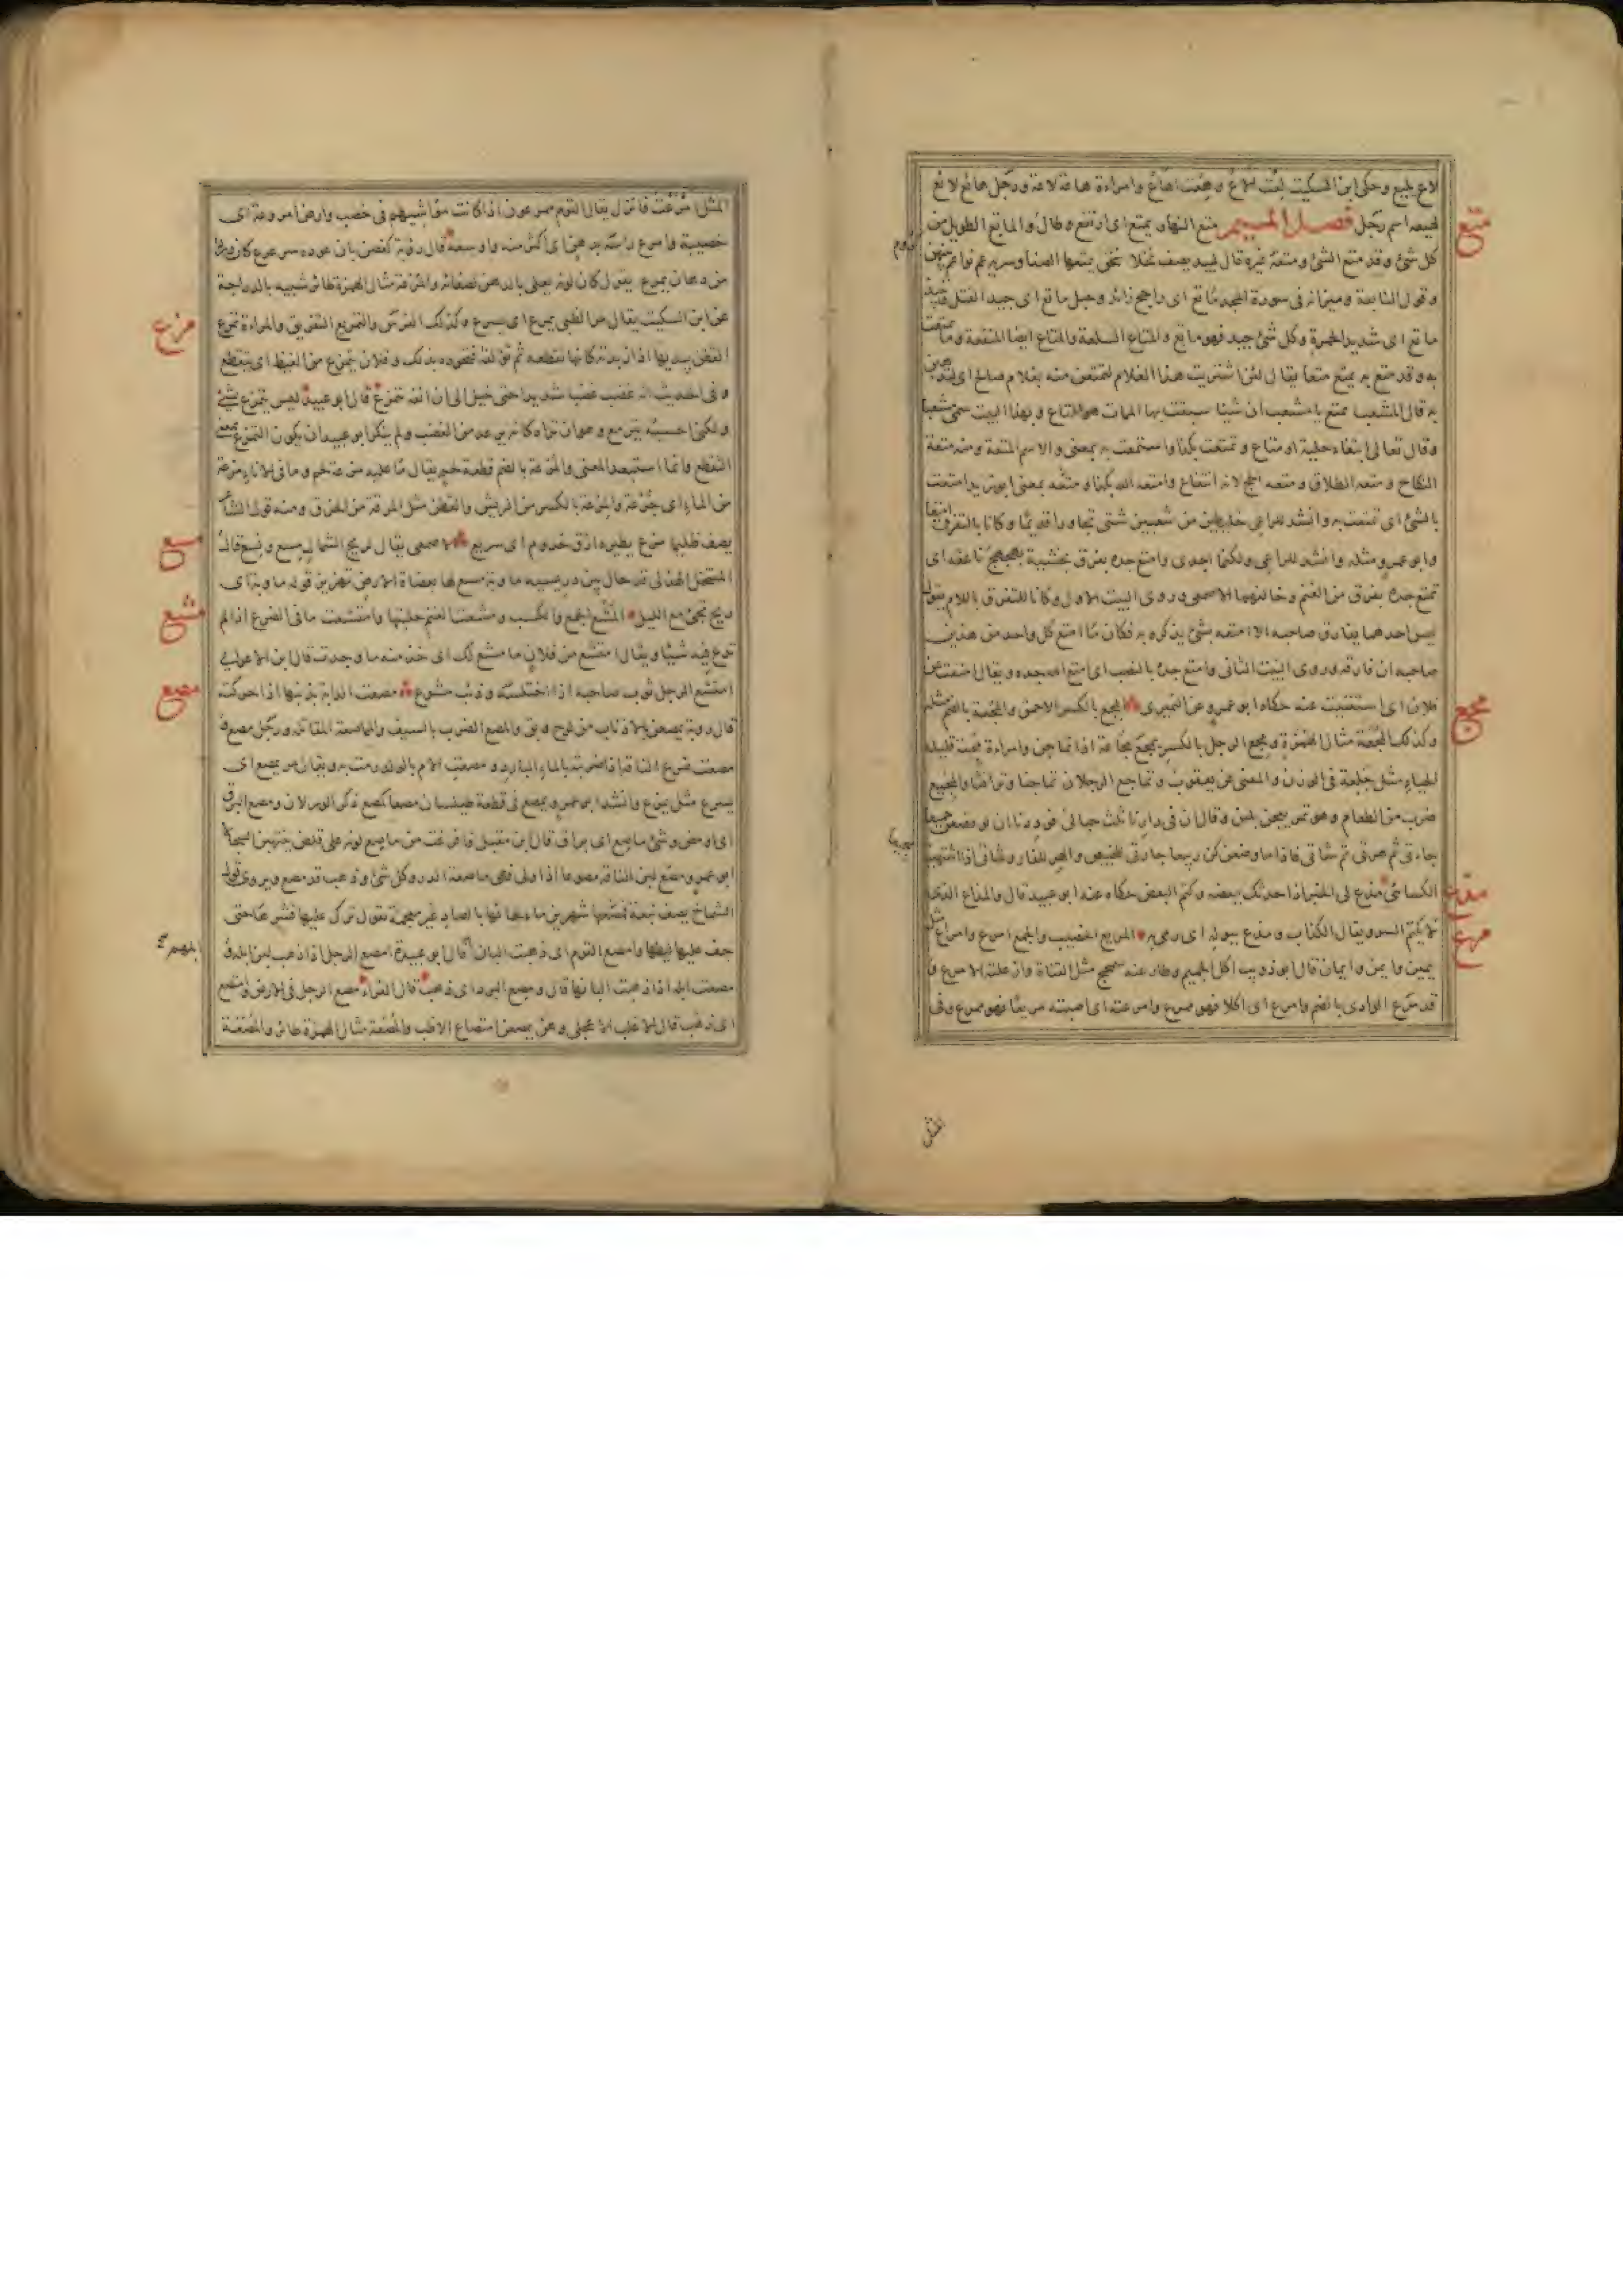 لاع يليع وحكى ابن السكيت لعت الاع وهعت اهاع وامراءة هاعة لاعة ورجل هائع لائع
متع
لهيعه اسم رجل فصل الميم متع النهار يمتع اى ارتفع وطال والماتع الطويل من
كل شئ وقد متع الشئ ومتعه غيره قال لبيد يصف نخلا سحق يمتعها الصفا وسريه عم نواعم بينهن
كروم
وقول النابغة وميزانه فى سورة المجد ماتع اى راجح زائد وحبل ماتع اى جيد الفتل
ماتع اى شديد الحمرة وكل شئ جيد فهو ماتع والمتاع السلعة والمتاع ايضا المنفعة وما تمتعت
به وقد متع به يمتع متعا يقال لئن اشتريت هذا الغلام لتمتعن منه بغلام صالح اى لتذهبن
به قال المشعب تمتع يا مشعب ان شيئا سبقت به الممات هو المتاع وبهذا البيت سمى مشعبا
وقال تعالى ابتغاء حلية او متاع وتمتعت بكذا واستمتعت به بمعنى والاسم المتعة ومنه متعة
النكاح ومتعه الطلاق ومتعه الحج لانه انتفاع وامتعه الله بكذا ومتعه بمعنى ابو زيد امتعت
بالشئ اى تمتعت به وانشد للراعى خليطين من شعبين شتى تجاورا قديما وكانا بالتفرق امتعا
وابو عمرو مثله وانشد للراعى ولكنما اجدى وامتع جده بفرق يخشيه بهجهج ناعقه اى
تمتع جده بفرق من الغنم وخالفهما الاصمعى وروى البيت الاول وكانا للتفرق باللام يقول
ليس احدهما يفارق صاحبه الا امتعه بشئ يذكره به فكان ما امتع كل واحد من هذين
صاحبه ان فارقه وروى البيت الثانى وامتع جده بالنصب اى امتع الله جده ويقال امتعت عن
مجع
فلان اى استغنيت عنه حكاه ابو عمرو عن النميرى المجع بالكسر الاحمق والمجعة بالضم مثله
وكذلك المجعة مثال الهمزة ومجع الرجل بالكسر يمجع مجاعة اذا تماجن وامراءة مجعة قليلة
الحياء مثل جلعة فى الوزن والمعنى عن يعقوب وتماجع الرجلان تماجنا وترافثا والمجيع
ضرب من الطعام وهو تمر يعجن بلبن وقال ان فى دارنا ثلث حبالى فوددنا ان لو وضعن جميعا
جارتى ثم هرتى ثم شاتى فاذا ما وضعن كن ربيعا جارتى للخبيص والهر للفار وشاتى اذا اشتهينا
مجيعا
مذع
الكسائى مذع لى الخبر اذا حدثك ببعضه وكتم البعض حكاه عنه ابو عبيد قال والمذاع الذى
مرع
لا يكتم السر ويقال الكذاب ومذع ببوله اى رمى به المريع الخصيب والجمع امرع وامراع مثل
يمين وايمن وايمان قال ابو ذويب اكل الجميم وطاوعته سمحج مثل القناة وازعلته الامرع و
قد مرع الوادى بالضم وامرع اى اكلا فهو ممرع وامرعته اى اصبته مريعا فهو ممرع وفى
المثل
المثل امرعت فانزل يقال القوم ممرعون اذا كانت مواشيهم فى خصب وارض امروعة اى
خصيبة وامرع راسه بدهن اى اكثر منه واوسعه قال رؤبة كغصن بان عوده سرعرع كان وردا
من دهان يمرع يقول كان لونه يعلى بالدهن لصفائه والمرعة مثال الهمزة طائر شبيه بالدراجة
مزع
عن ابن السكيت يقال مر الظبى يمزع اى يسرع وكذلك الفرس والتمزيع التفريق والمراءة تمزع
القطن بيديها اذا زبدته كانها تقطعه ثم تؤلفه فتجوده بذلك وفلان يتمزع من الغيظ اى يتقطع
وفى الحديث انه غضب غضبا شديدا حتى خيل الى ان انفه يتمزع قال ابو عبيد ليس يتمزع بشئ
ولكنى احسبه يترمع وهو ان تراه كانه يرعد من الغضب ولم ينكر ابو عبيد ان يكون التمزع بمعنى
التقطع وانما استبعد المعنى والمزعة بالضم قطعة لحم يقال ما عليه مزعة لحم وما فى الاناء مزعة
من الماء اى جرعة والمزعة بالكسر من الريش والقطن مثل المزقة من الخرق ومنه قول الشاعر
مسع
يصف ظليما مزع يطيره ازف خذوم اى سريع الاصمعى يقال لريح الشمال مسع ونسع قال
المتنخل الهذلى قد حال بين دريسيه مأوبة مسع لها بعضاه الارض تهزيز قوله مأوبة اى
مشع
ريح تجئ مع الليل المشع الجمع والكسب ومشعت الغنم حلبتها وامتشعت ما فى الضرع اذا لم
تدع فيه شيئا ويقال امتشع من فلان ما مشع لك اى خذ منه ما وجدت قال ابن الاعرابى
مصع
امتشع الرجل ثوب صاحبه اذا اختلسه وذئب مشوع مصعت الدابة بذنبها اذا حركته
قال رؤبة يمصعن بالاذناب من لوح وبق والمصع الضرب بالسيف والمماصعة المقاتلة ورجل مصع و
مصعت ضرع الناقة اذا ضربته بالماء البارد ومصعت الام بالولد رمت به ويقال مر يمصع اى
يسرع مثل يمزع وانشد ابو عمرو يمصع فى قطعة طيلسان مصعا كمصع ذكر الورلان ومصع البرق
اى اومض وشئ ماصع اى براق قال ابن مقبل فافرغت من ماصع لونه على قلص ينتهبن السجالا
ابو عمرو ومصع لبن الناقة مصوعا اذا ولى فهى ماصعة الدر وكل شئ ذهب قد مصع ويروى قول
الشماخ يصف نبعة فمصعها شهرين ماء لحائها
جف عليها ليطها وامصع القوم اى ذهبت البان ابلهم قال ابو عبيدة امصع الرجل اذا ذهب لبن ابله و
مصعت ابله اذا ذهبت البانها قال ومصع البرد اى ذهب قال الفراء مصع الرجل فى الارض وامتصع
اى ذهب قال الاغلب العجلى وهن يمصعن امتصاع الاظب والمصعة مثال الهمزة طائر والمصعة